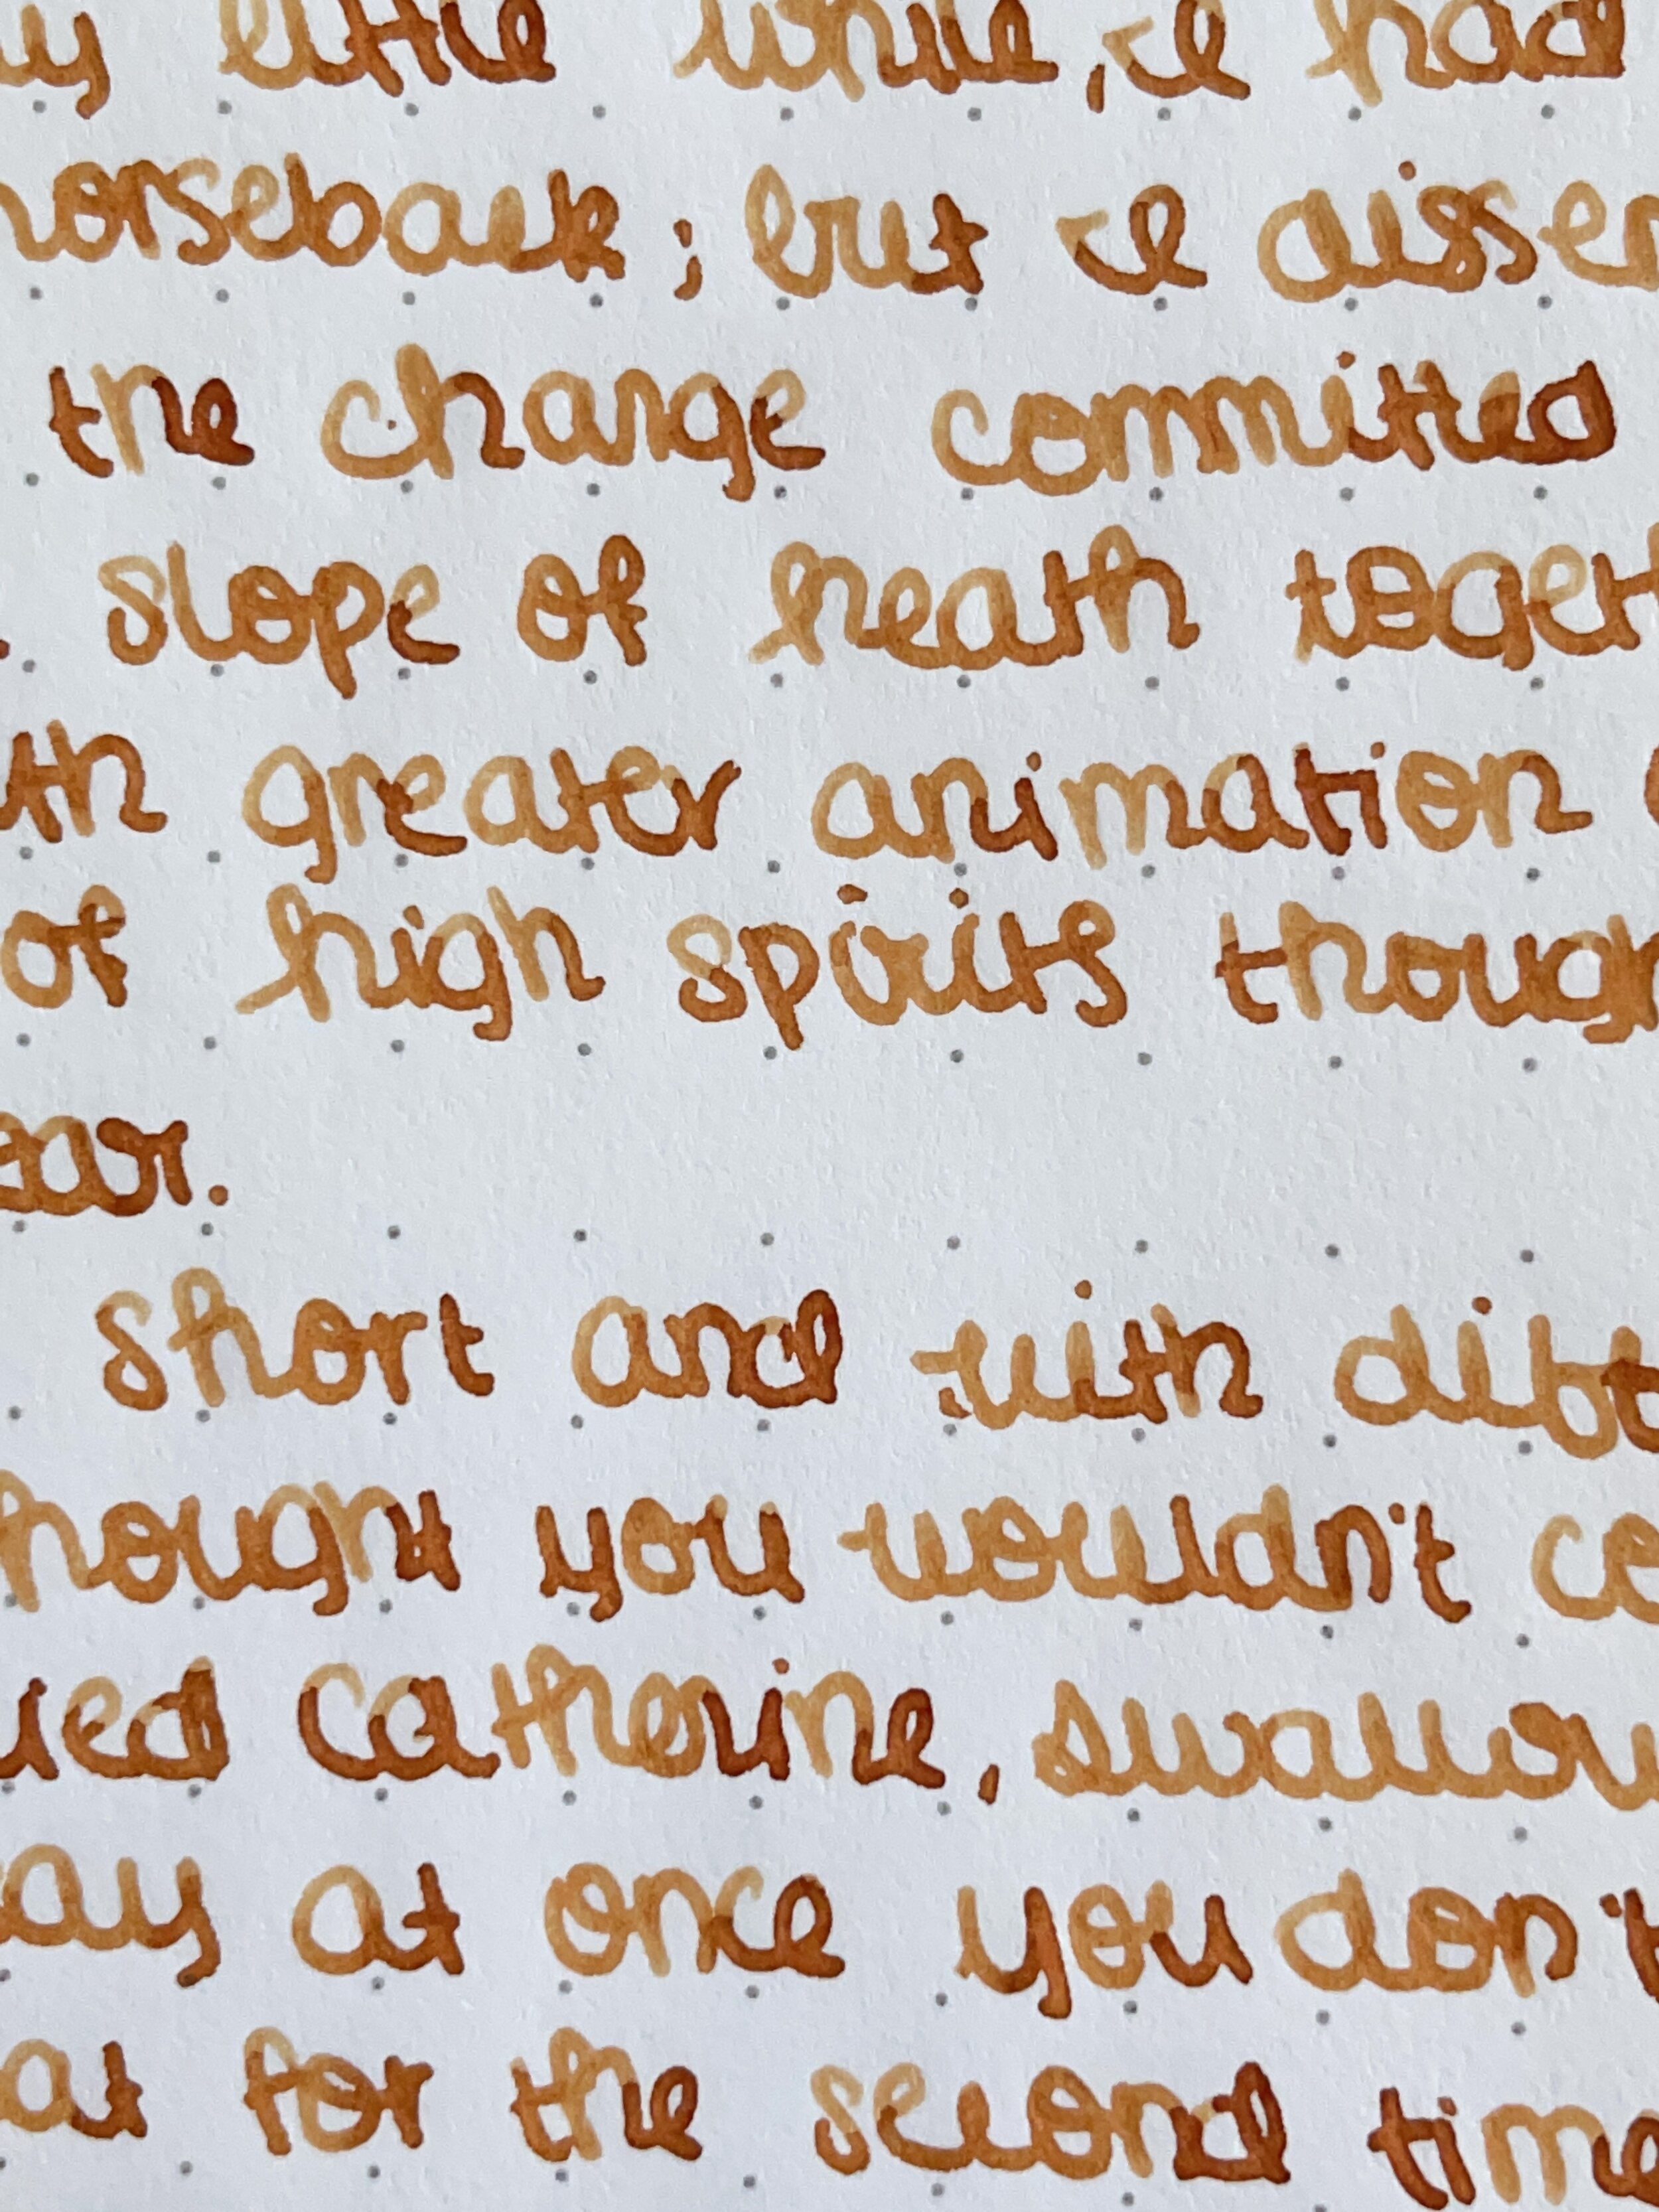 y little while, I had
horseback; but I dissen
the charge committed
slope of heath togeth
th greater animation
of high spirits though
ear.
short and with diff
hought you wouldn't ce
ied Catherine, swallow
ay at once you don't
at for the second time